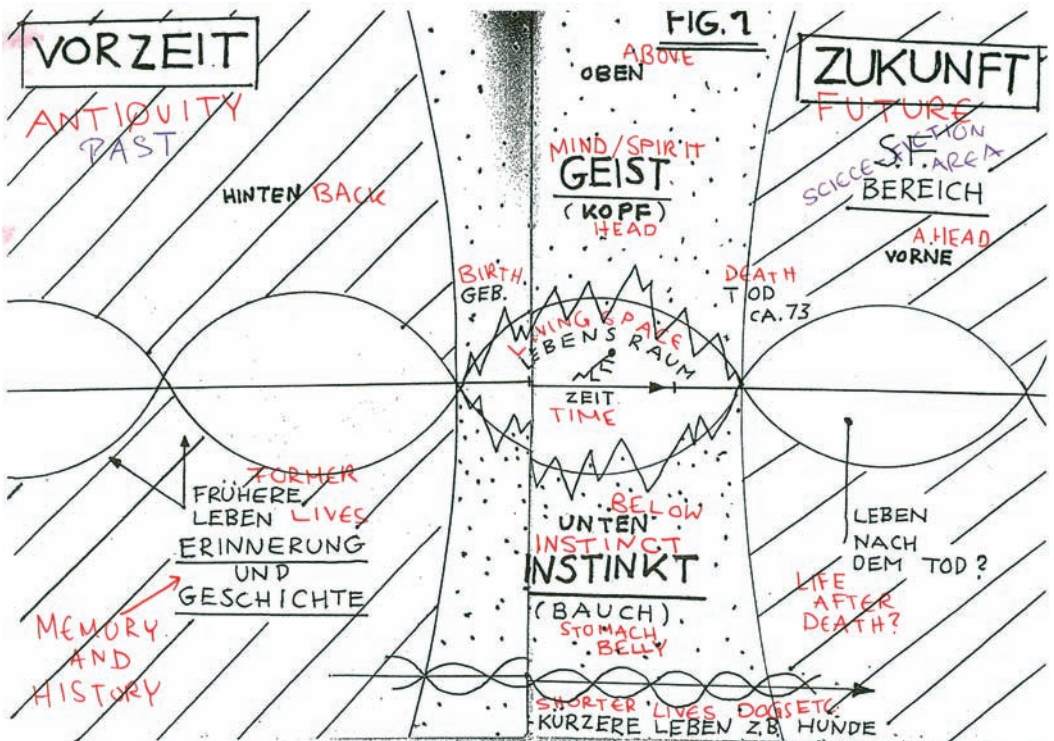 VORZEIT
ANTIQUITY
PAST
HINTEN BACK
FIG. 1
ABOVE
OBEN
MIND/SPIRIT
GEIST
(KOPF)
HEAD
ZUKUNFT
FUTURE
S.F.
SCIECE-FICTION
AREA
BEREICH
A.HEAD
VORNE
BIRTH
GEB.
DEATH
TOD
CA. 73
LIVING SPACE
LEBENSRAUM
ZEIT
TIME
FORMER
FRÜHERE
LEBEN LIVES
ERINNERUNG
UND
GESCHICHTE
MEMORY
AND
HISTORY
BELOW
UNTEN
INSTINCT
INSTINKT
(BAUCH)
STOMACH
BELLY
LEBEN
NACH
DEM TOD?
LIFE
AFTER
DEATH?
SHORTER LIVES DOGS ETC
KÜRZERE LEBEN Z.B. HUNDE